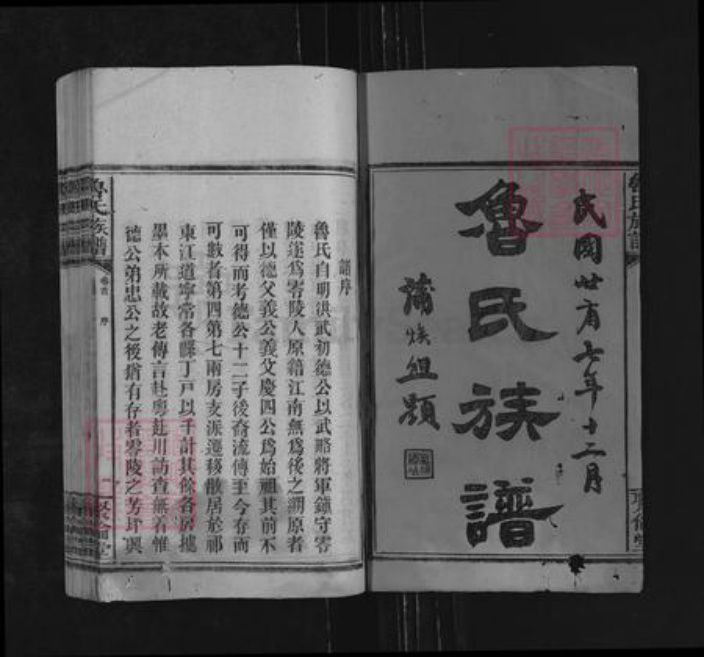 民國卅有七年十二月
魯氏族譜
蒲煥組題
魯氏族譜
譜序
魯氏自明洪武初德公以武略將軍鎮守零
陵遂爲零陵人原籍江南無爲後之溯原者
僅以德父義公義父慶四公爲始祖其前不
可得而考德公十二子後裔流傳至今存而
可數者第四第七兩房支派遷移散居於祁
東江道寧常各縣丁戶以千計其餘各房據
墨本所載故老傳言赴粵赴川訪查無着惟
德公弟忠公之後猶有存者零陵之芳坪與
魯氏族譜
卷首
序
一
敦倫堂